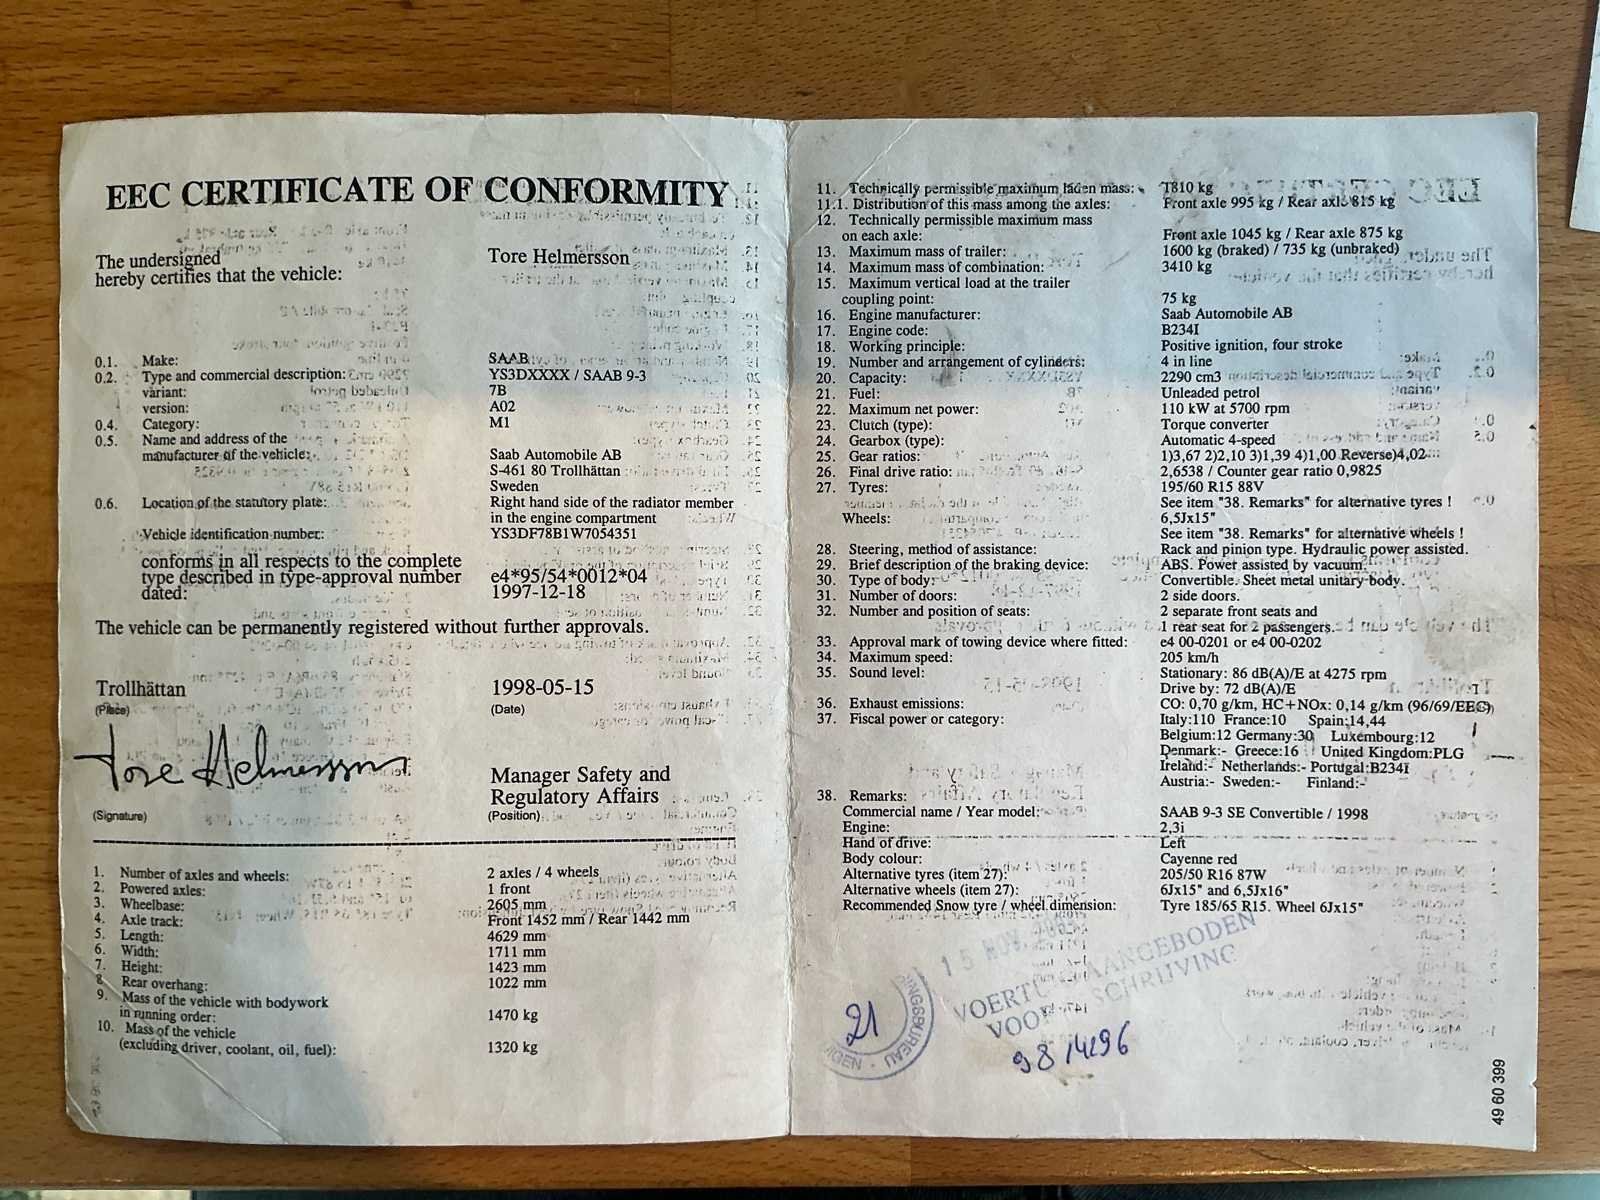 EEC CERTIFICATE OF CONFORMITY
The undersigned Tore Helmersson
hereby certifies that the vehicle:
0.1. Make: SAAB
0.2. Type and commercial description: YS3DXXXX / SAAB 9-3
variant: 7B
version: A02
0.4. Category: M1
0.5. Name and address of the
manufacturer of the vehicle: Saab Automobile AB
S-461 80 Trollhättan
Sweden
0.6. Location of the statutory plate: Right hand side of the radiator member
in the engine compartment
Vehicle identification number: YS3DF78B1W7054351
conforms in all respects to the complete
type described in type-approval number e4*95/54*0012*04
dated: 1997-12-18
The vehicle can be permanently registered without further approvals.
Trollhättan 1998-05-15
(Place) (Date)
Tore Helmersson
Manager Safety and
Regulatory Affairs
(Signature) (Position)
1. Number of axles and wheels: 2 axles / 4 wheels
2. Powered axles: 1 front
3. Wheelbase: 2605 mm
4. Axle track: Front 1452 mm / Rear 1442 mm
5. Length: 4629 mm
6. Width: 1711 mm
7. Height: 1423 mm
8 Rear overhang: 1022 mm
9. Mass of the vehicle with bodywork
in running order: 1470 kg
10. Mass of the vehicle
(excluding driver, coolant, oil, fuel): 1320 kg
11. Technically permissible maximum laden mass: 1810 kg
11.1. Distribution of this mass among the axles: Front axle 995 kg / Rear axle 815 kg
12. Technically permissible maximum mass
on each axle: Front axle 1045 kg / Rear axle 875 kg
13. Maximum mass of trailer: 1600 kg (braked) / 735 kg (unbraked)
14. Maximum mass of combination: 3410 kg
15. Maximum vertical load at the trailer
coupling point: 75 kg
16. Engine manufacturer: Saab Automobile AB
17. Engine code: B234I
18. Working principle: Positive ignition, four stroke
19. Number and arrangement of cylinders: 4 in line
20. Capacity: 2290 cm3
21. Fuel: Unleaded petrol
22. Maximum net power: 110 kW at 5700 rpm
23. Clutch (type): Torque converter
24. Gearbox (type): Automatic 4-speed
25. Gear ratios: 1)3,67 2)2,10 3)1,39 4)1,00 Reverse)4,02
26. Final drive ratio: 2,6538 / Counter gear ratio 0,9825
27. Tyres: 195/60 R15 88V
See item "38. Remarks" for alternative tyres !
Wheels: 6,5Jx15"
See item "38. Remarks" for alternative wheels !
28. Steering, method of assistance: Rack and pinion type. Hydraulic power assisted.
29. Brief description of the braking device: ABS. Power assisted by vacuum.
30. Type of body: Convertible. Sheet metal unitary body.
31. Number of doors: 2 side doors.
32. Number and position of seats: 2 separate front seats and
1 rear seat for 2 passengers.
33. Approval mark of towing device where fitted: e4 00-0201 or e4 00-0202
34. Maximum speed: 205 km/h
35. Sound level: Stationary: 86 dB(A)/E at 4275 rpm
Drive by: 72 dB(A)/E
36. Exhaust emissions: CO: 0,70 g/km, HC+NOx: 0,14 g/km (96/69/EEC)
37. Fiscal power or category: Italy:110 France:10 Spain:14,44
Belgium:12 Germany:30 Luxembourg:12
Denmark:- Greece:16 United Kingdom:PLG
Ireland:- Netherlands:- Portugal:B234I
Austria:- Sweden:- Finland:-
38. Remarks:
Commercial name / Year model: SAAB 9-3 SE Convertible / 1998
Engine: 2,3i
Hand of drive: Left
Body colour: Cayenne red
Alternative tyres (item 27): 205/50 R16 87W
Alternative wheels (item 27): 6Jx15" and 6,5Jx16"
Recommended Snow tyre / wheel dimension: Tyre 185/65 R15. Wheel 6Jx15"
15 NOV.
AANGEBODEN
21
98/4296
49 60 399